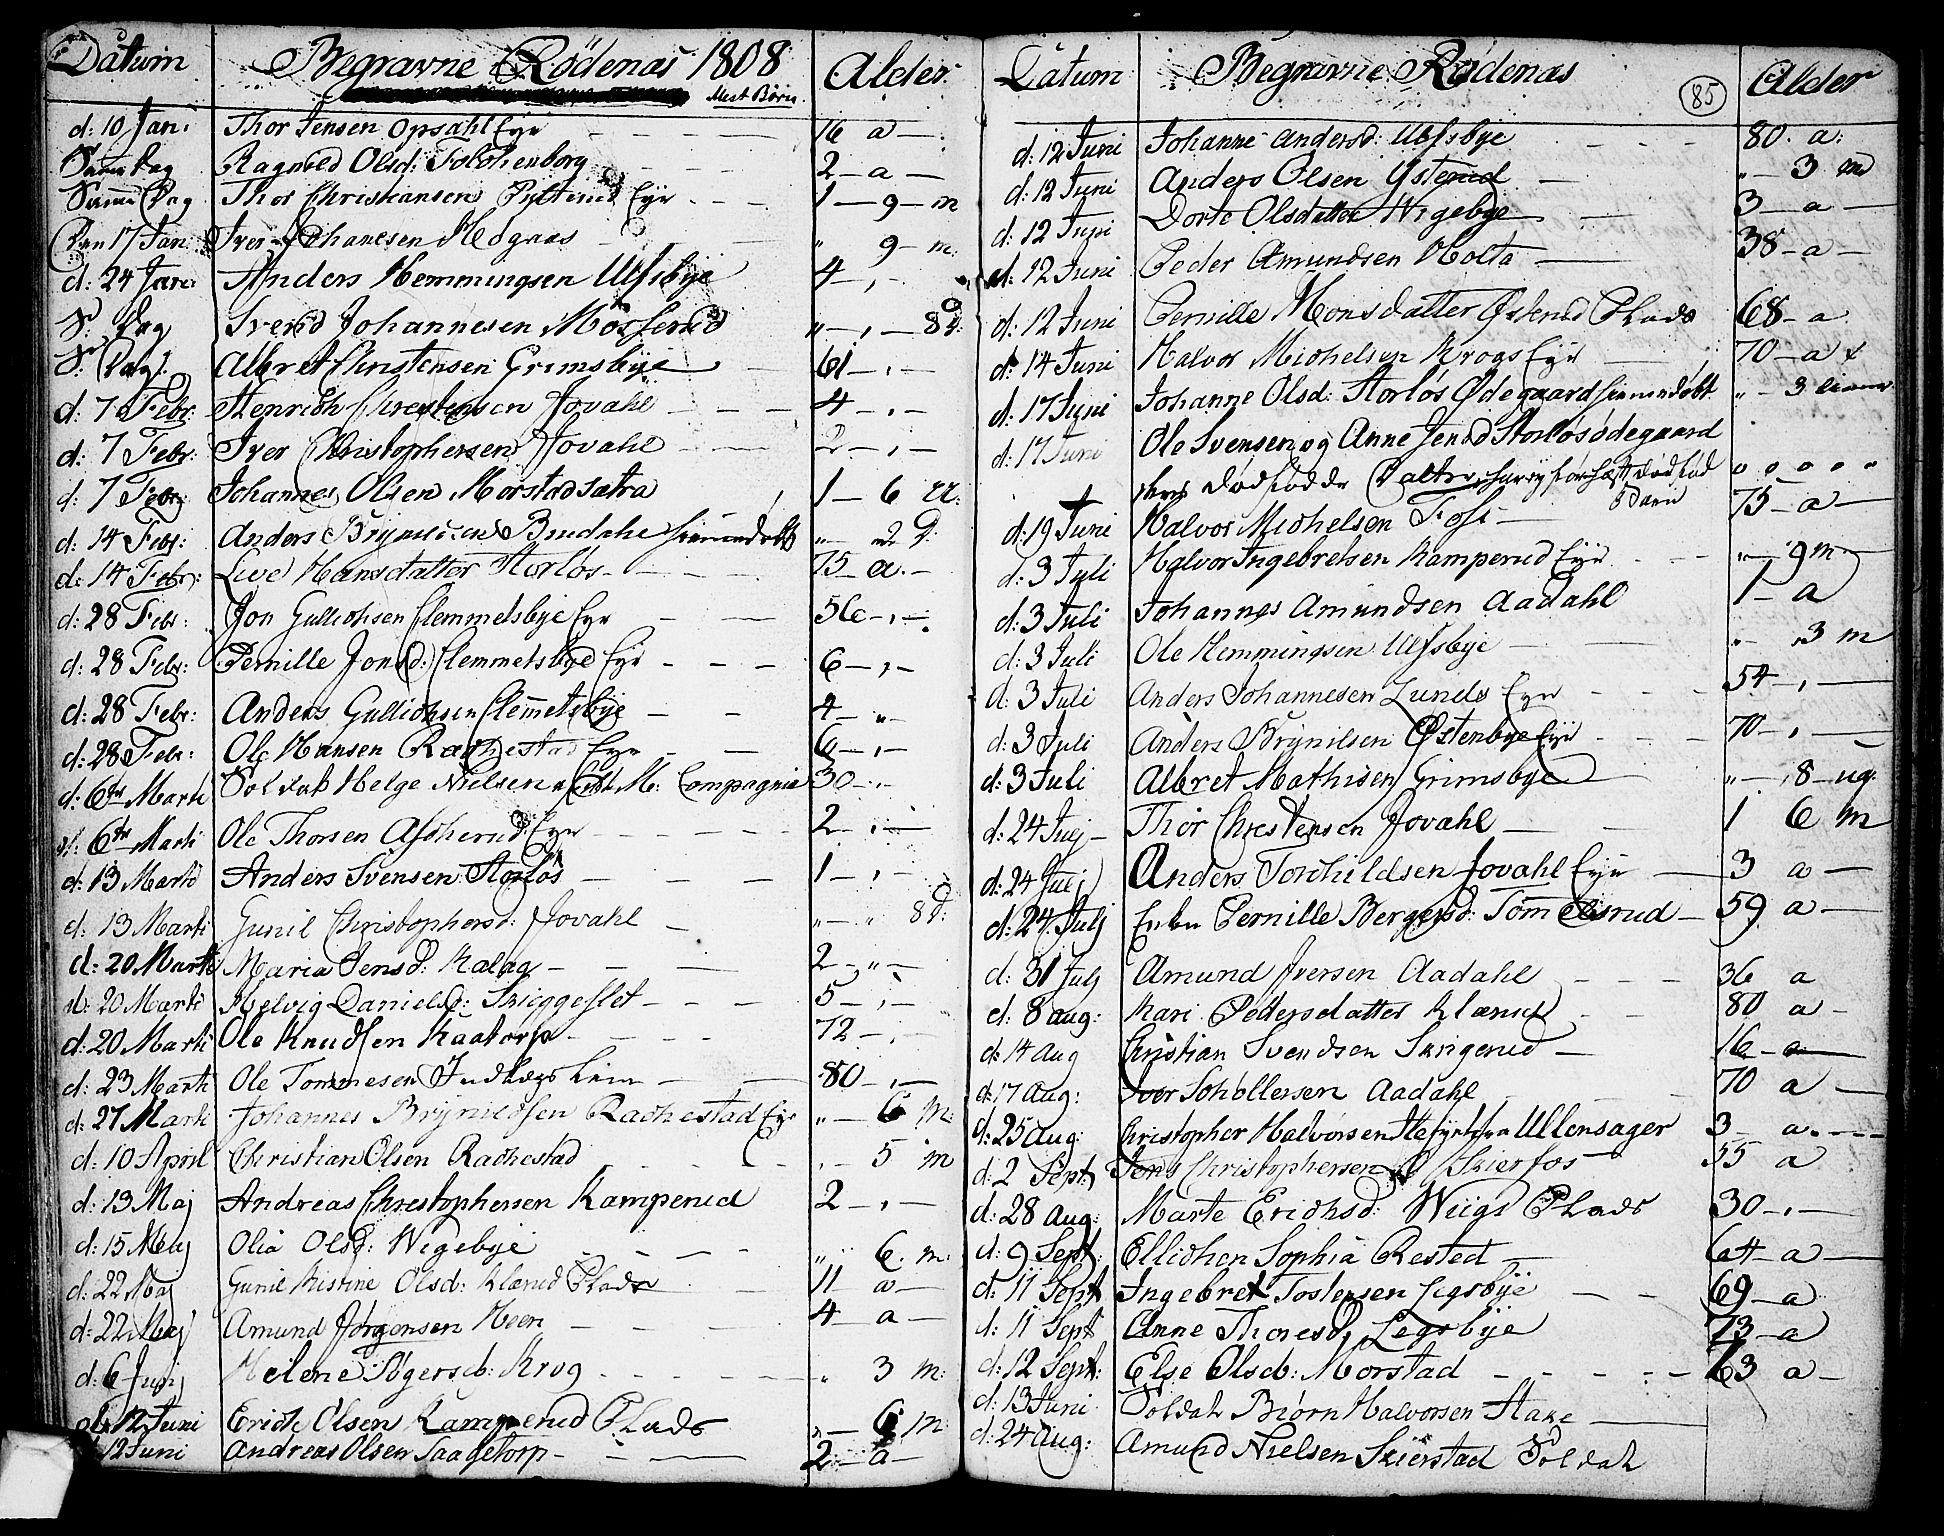 Datum Begravne Rödenäs 1808 Alder
Mest Börn
d: 10 Jan: Thor Jensen Opsahl Eye 16 a
Samme Dag Ragnild Olsd: 2 a
Samme Dag Thor Christiansen Eye 1 9 m
Den 17 Jan: Iver Johanesen 9 m:
d: 24 Jan: Anders Hemmingsen Ulfsbye 4
S: Dag Svend Johannesen Mosserud 8 d:
S: Dag: Albret Christensen Grimsbye 61
d: 7 Febr: Henrich Christensen Jovahl 4
d: 7 Febr: Iver Christophersen Jovahl 2
d: 7 Febr: Johannes Olsen Morstadsætra 1 6 u:
d: 14 Febr: Anders Buedahl hiemmedøbt 2 d:
d: 14 Febr: Live Hansdatter Storløs 75 a.
d: 28 Febr: Jon Gullichsen Clemmetsbye Eye 56
d: 28 Febr: Pernille Jonsd: Clemmetsbye Eye 6
d: 28 Febr: Anders Gullichsen Clemmetsbye 4
d: 28 Febr: Ole Hansen Rachestad Eye 6
d: 6te Marti Soldat Helge Nielsen M: Compagnie 30
d: 6te Marti Ole Thorsen Eye 2
d: 13 Marti Anders Svensen Storløs 1
d: 13 Marti Gunil Christophersd: Jovahl 8 d:
d: 20 Marti Maria Jensd: Kalag 2
d: 20 Marti Helvig Danielsd: 5
d: 20 Marti Ole Knudsen Kaatorp 72
d: 23 Marti Ole Tommesen 80
d: 27 Marti Johannes Brynildsen Rachestad Eye 6 m:
d: 10 April Christian Olsen Rachestad 5 m
d: 13 Maj Andreas Christophersen Kamperud 2
d: 15 Maj Olia Olsd: Wigebye 6 m:
d: 22 Maj Gunil Kistine Olsd: Klærud Plads 11 a
d: 22 Maj Amund Jørgensen Heen 4 a
d: 6 Junj Helene Krog 3 m:
d: 12 Juni Erich Olsen Kamperud Plads 6 m:
12 Juni Andreas Olsen Saagetorp 2 a
Datum Begravne Rødenæs 85 Alder
d: 12 Juni Johanne Andersd: Ulfsbye 80 a:
d: 12 Juni Anders Olsen Østerud 3 m
d: 12 Juni Dorte Olsdatter Wigebye 3 a
d: 12 Juni Peder Amundsen Holta 38 a
d: 12 Juni Pernille Monsdatter Østerud Plads 68 a
d: 14 Juni Halvor Michelsen Krogs Eye 70 a
d: 17 Juni Johanne Olsd: Storløs Ødegaard hiemmedøbt 3
d: 17 Juni Ole Svensen og Anne Jensd Storløsødegaard
dødfødde
d: 19 Juni Halvor Michelsen Foss 75 a
d: 3 Juli Halvor Ingebretsen Kamperud Eye 9 m
d: 3 Juli Johannes Amundsen Aadahl 1 a
d: 3 Juli Ole Hemmingsen Ulfsbye 3 m
d: 3 Juli Anders Johannesen Lunds Eye 54
d: 3 Juli Anders Brynilsen Østenbye Eye 70
d: 3 Juli Albret Mathisen Grimsbye 8 ug:
d: 24 Julj Thor Chrestensen Jovahl 1 6 m
d: 24 Julj Anders Torchildsen Jovahl Eye 3 a
d: 24 Julj Enken Pernille Bergersd: Tommelsrud 59 a
d: 31 Julj Amund Iversen Aadahl 36 a
d: 8 aug: Kari Pedersdatter Klærud 80 a
d: 14 Aug Christian Svendsen Skrigerud 16 a
d: 17 Aug: Iver Schøllersen Aadahl 70 a
d: 25 aug: Christopher Halvorsen fra Ullensager 3 a.
d: 2 Sept: Jens Christophersen Skierfos 55 a
d: 28 aug: Marte Erichsd: Wiigs Plads 30
d: 9 Sept: Ellichen Sophia Rested 64 a
d: 11 Sept Ingebret Tostensen Legsbye 69 a
d: 11 Sept Anne Thoresd: Legsbye 73 a
d: 12 Sept: Else Olsd: Morstad 63 a
d: 13 Juni Soldat Biørn Halvorsen
d: 24 Aug: Amund Nielsen Skierstad Soldat